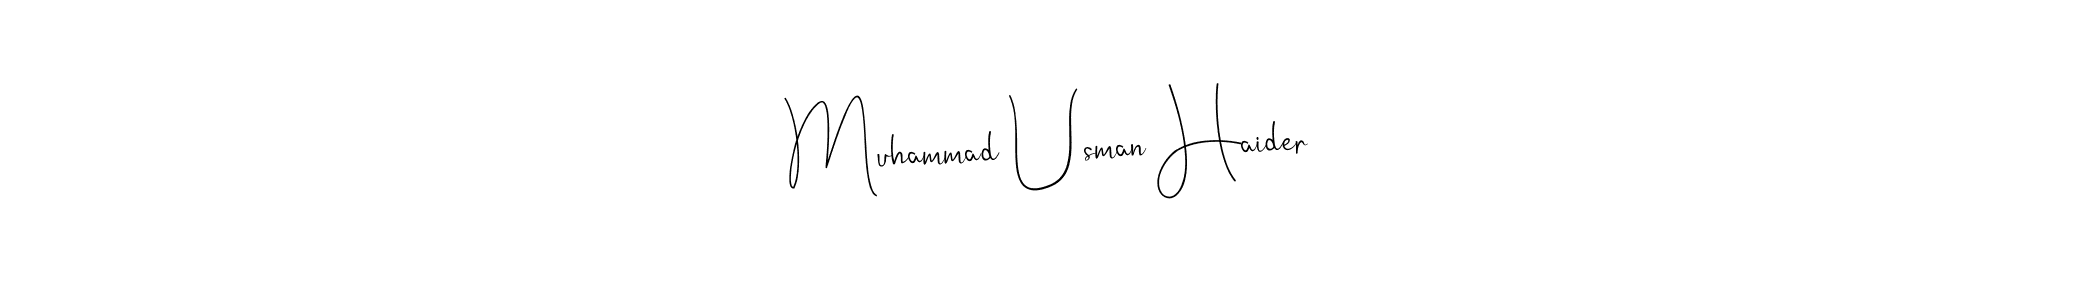 Muhammad Usman Haider